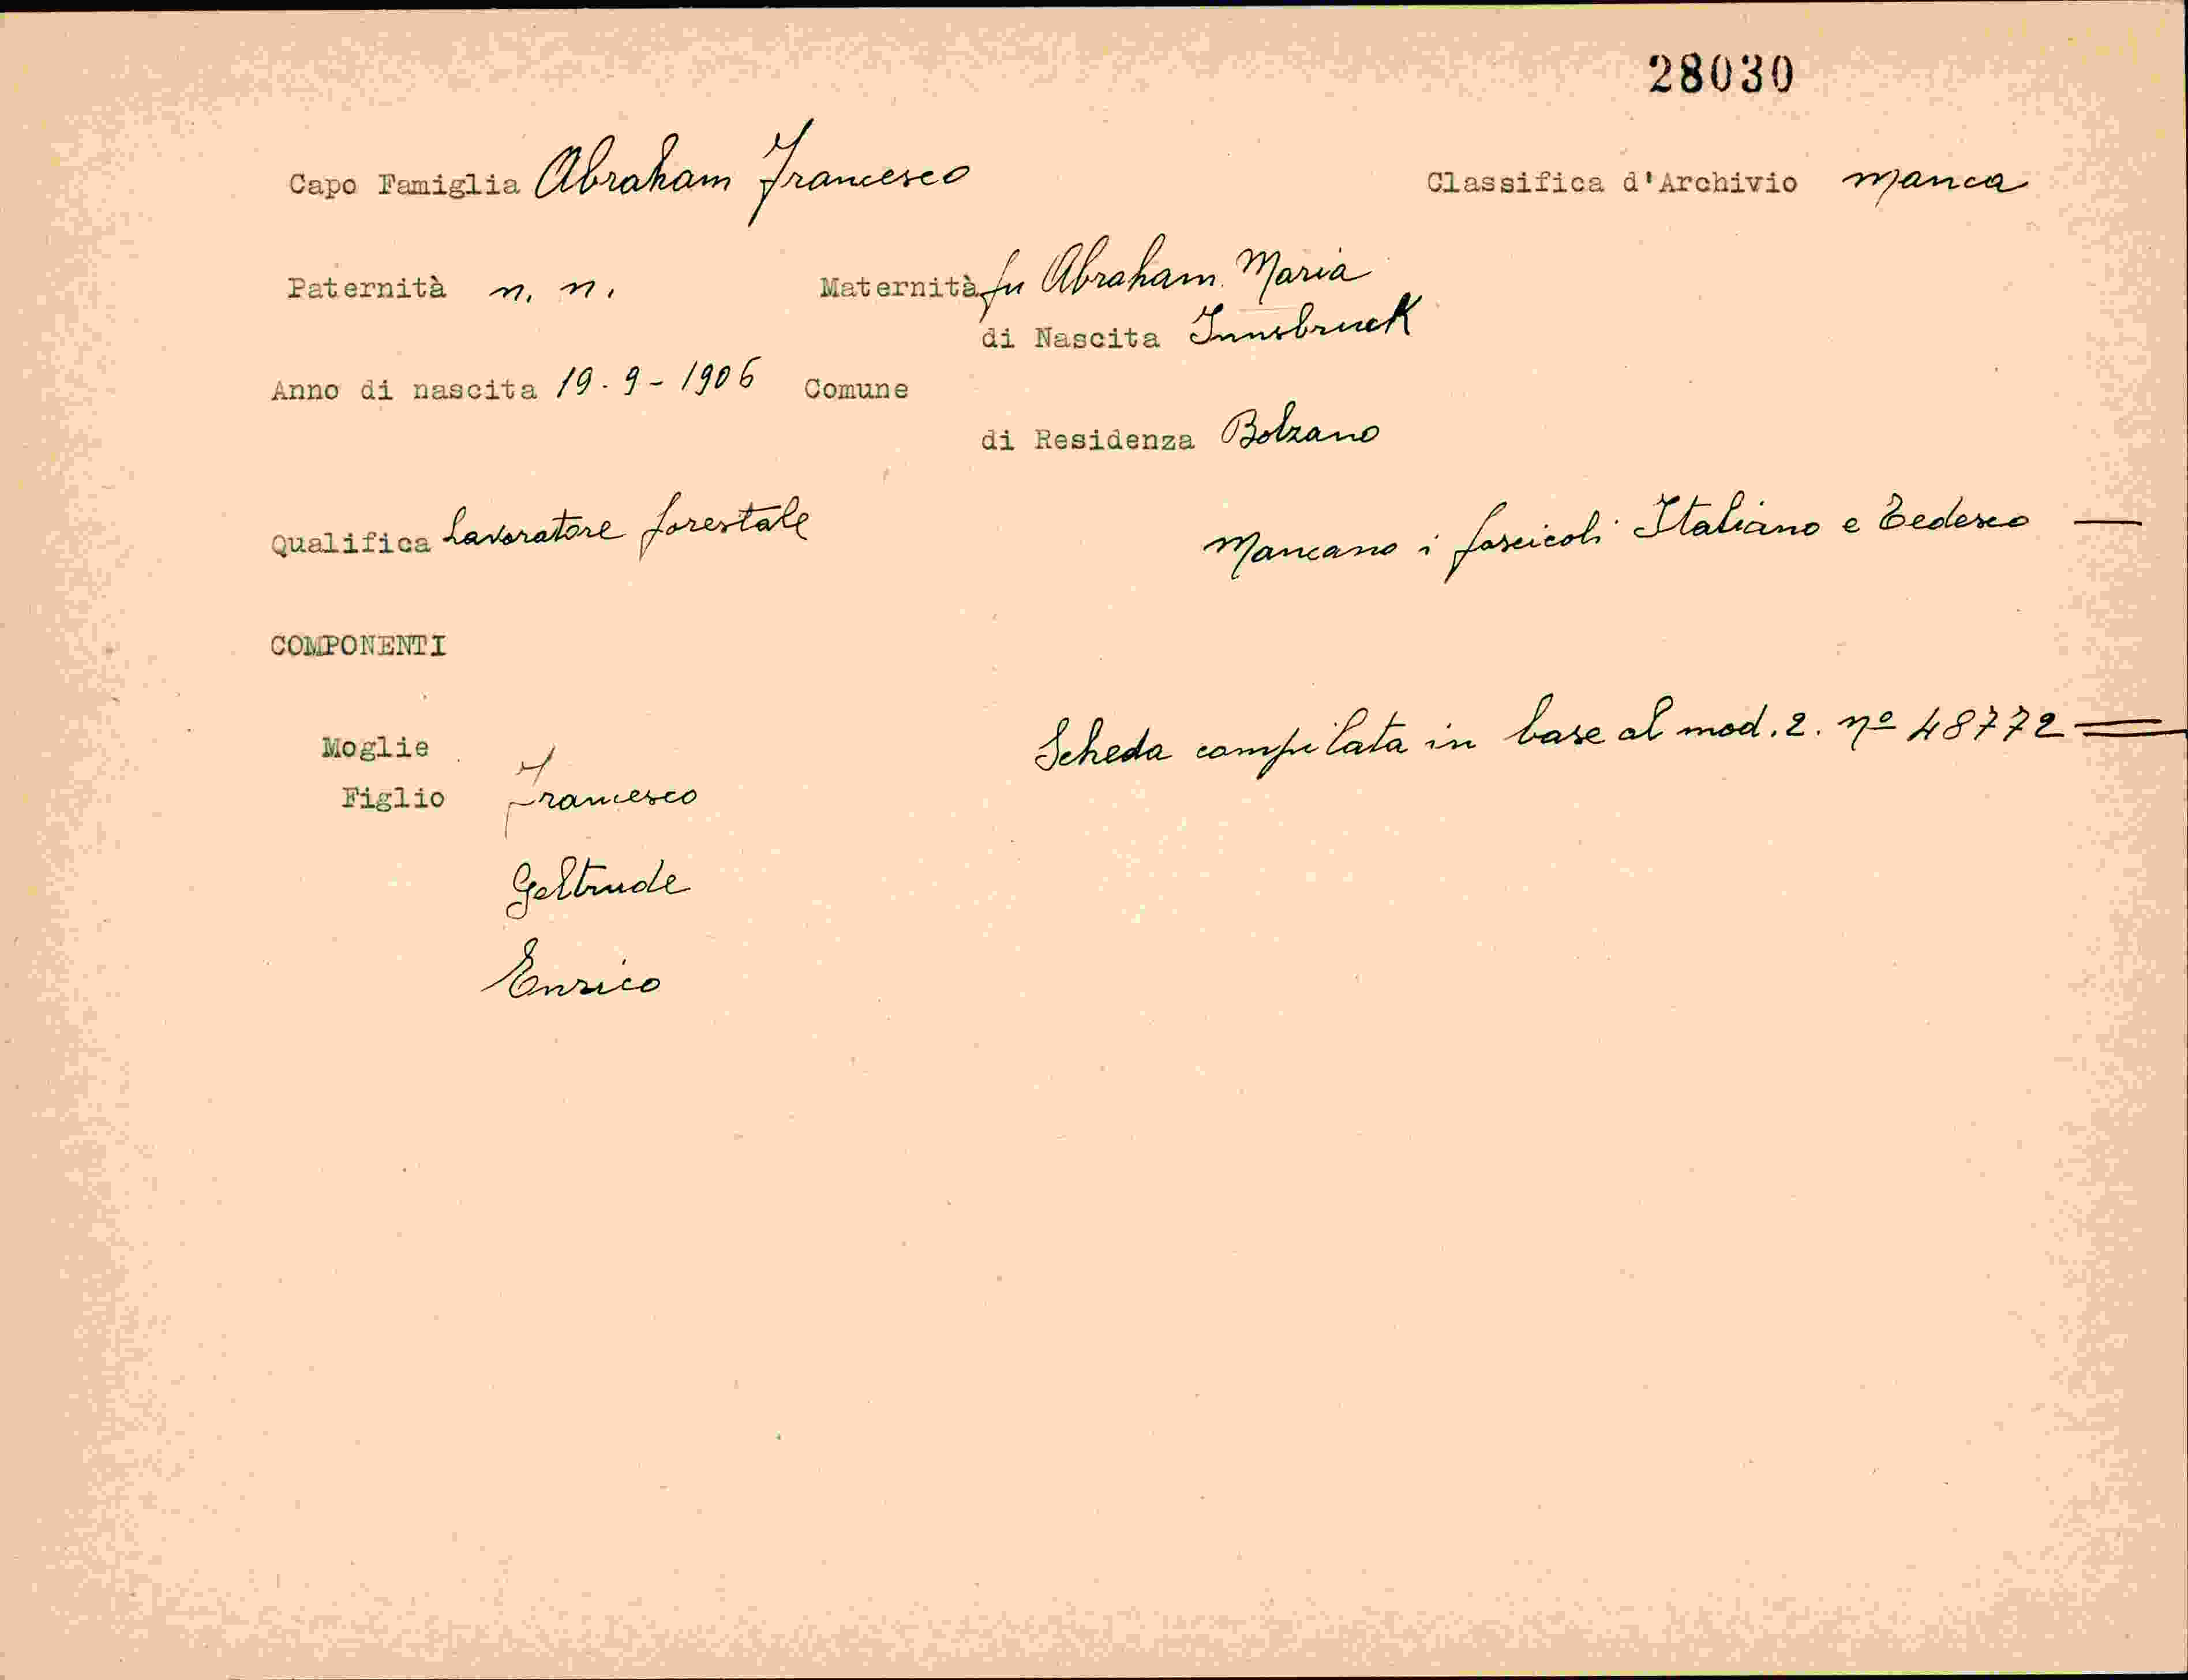 28030
Capo Famiglia Abraham Francesco Classifica d'Archivio manca
Paternità n. n. Maternità fu Abraham Maria
di Nascita Innsbruck
Anno di nascita 19-9-1906 Comune
di Residenza Bolzano
Qualifica Lavoratore forestale Mancano i fascicoli Italiano e Tedesco —
COMPONENTI
Moglie Scheda compilata in base al mod. 2. nº 48772 =
Figlio Francesco
Geltrude
Enrico